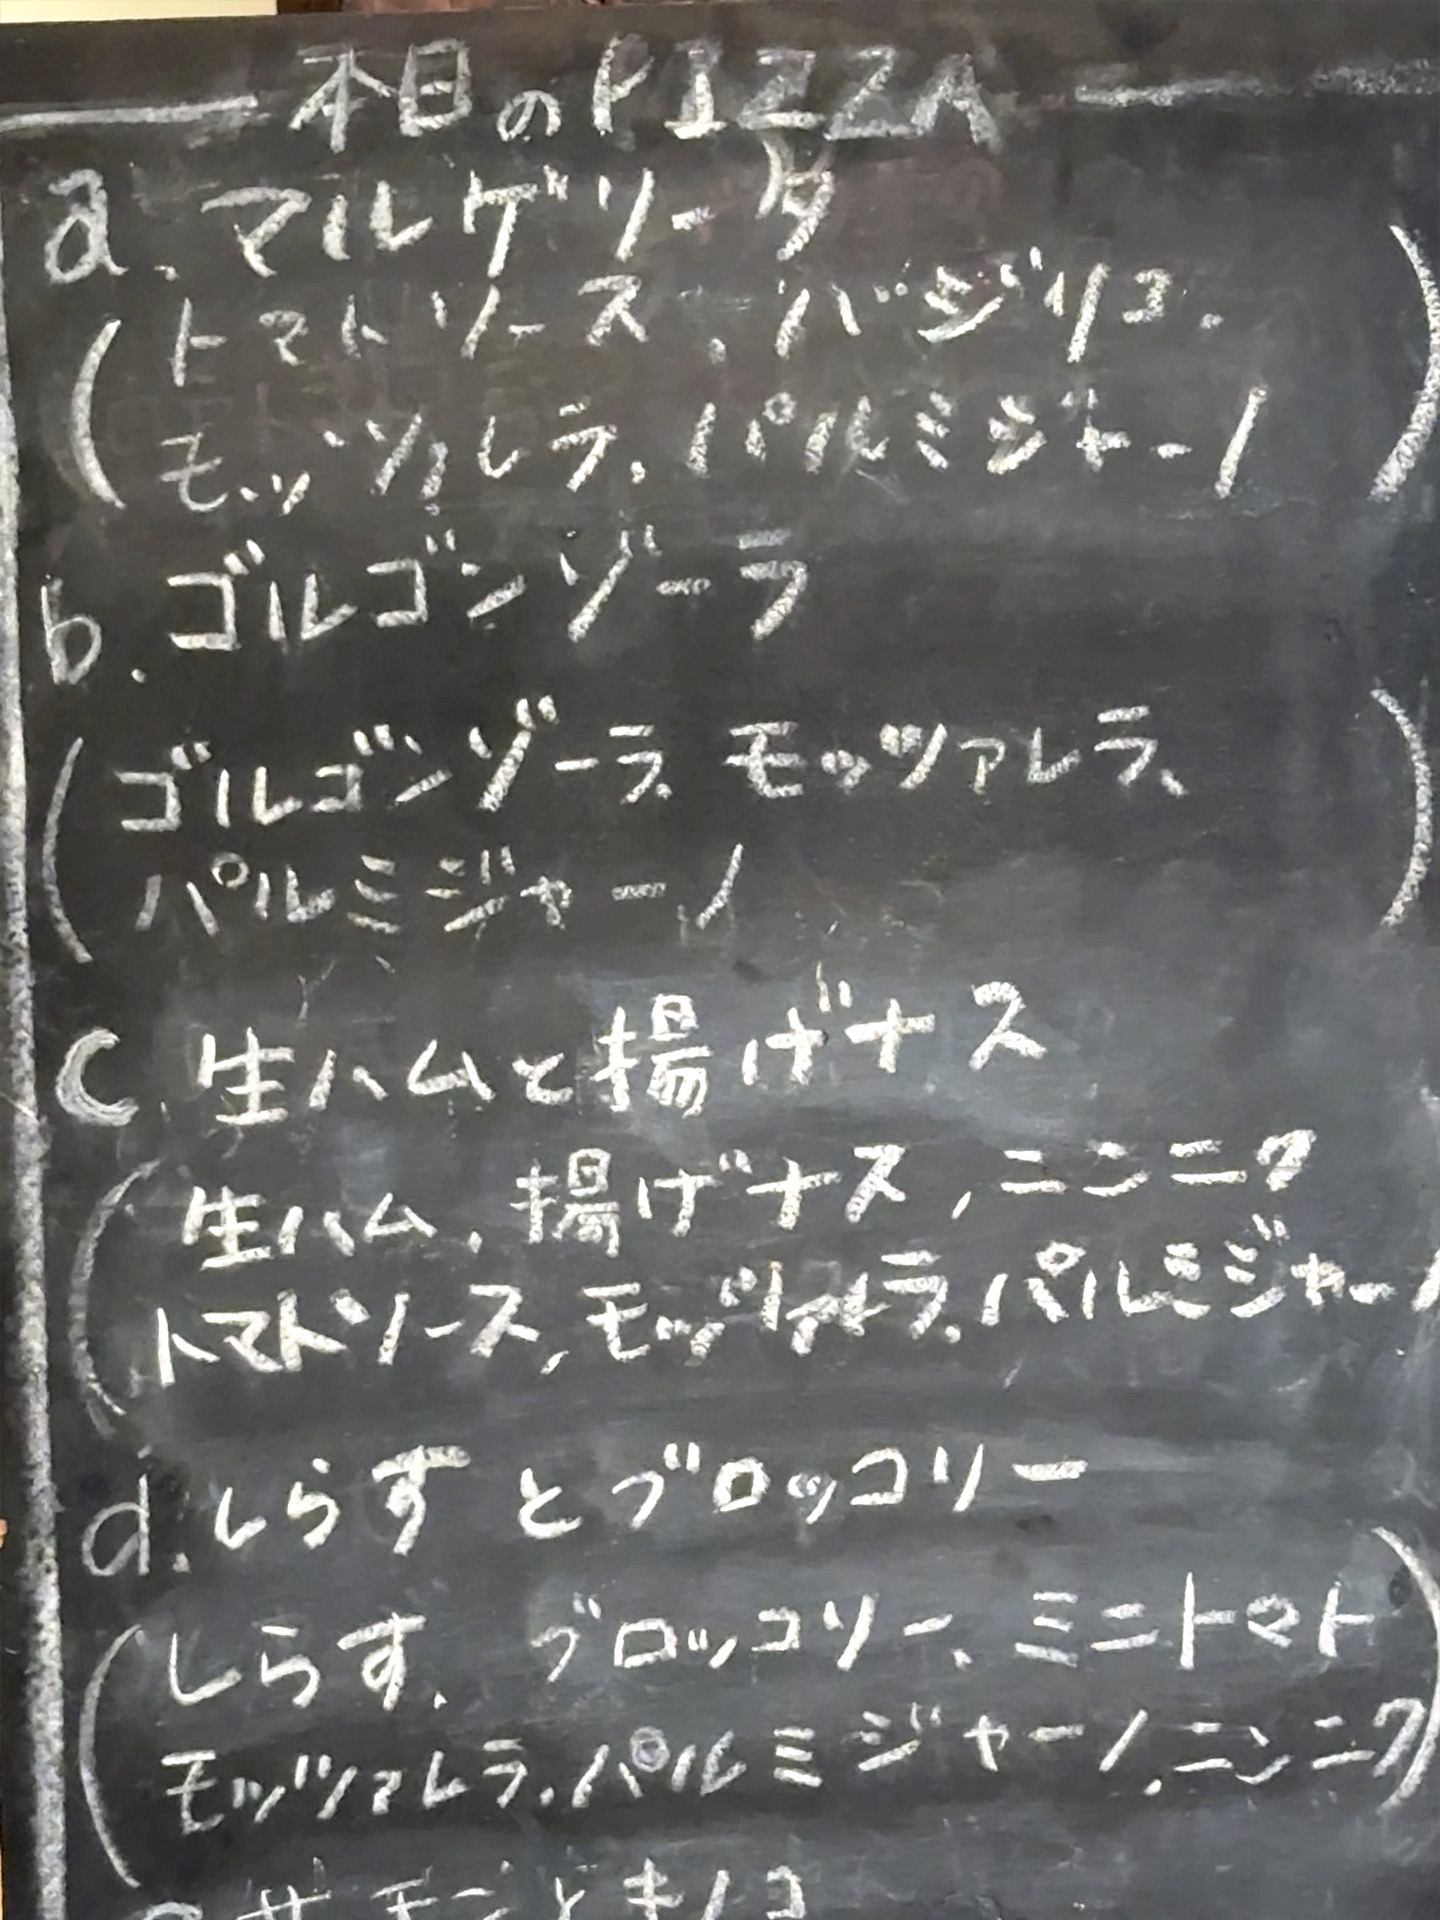 本日のPIZZA
a. マルゲリータ
(トマトソース、バジリコ、
モッツァレラ、パルミジャーノ)
b. ゴルゴンゾーラ
(ゴルゴンゾーラ、モッツァレラ、
パルミジャーノ)
c. 生ハムと揚げナス
(生ハム、揚げナス、ニンニク
トマトソース、モッツァレラ、パルミジャーノ
d. しらすとブロッコリー
(しらす、ブロッコリー、ミニトマト
モッツァレラ、パルミジャーノ、ニンニク)
e サーモンとキノコ